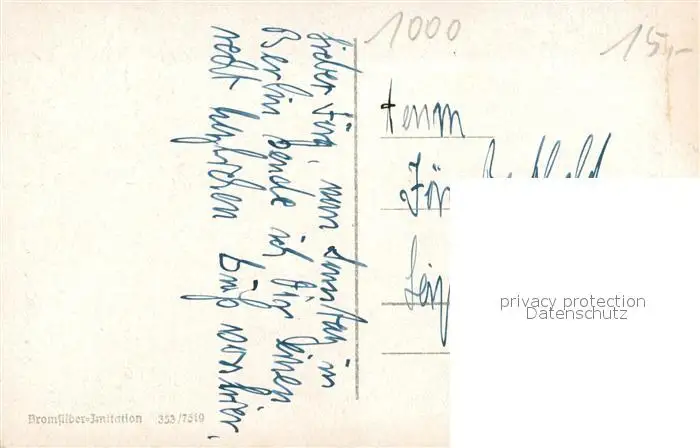 1000
15,-
Lieber Jörg, vom Sonntag in
Berlin sende ich Dir einen
recht herzlichen Gruß
Herrn
Jör
Leip
privacy protection
Datenschutz
Bromsilber=Imitation 353/7519